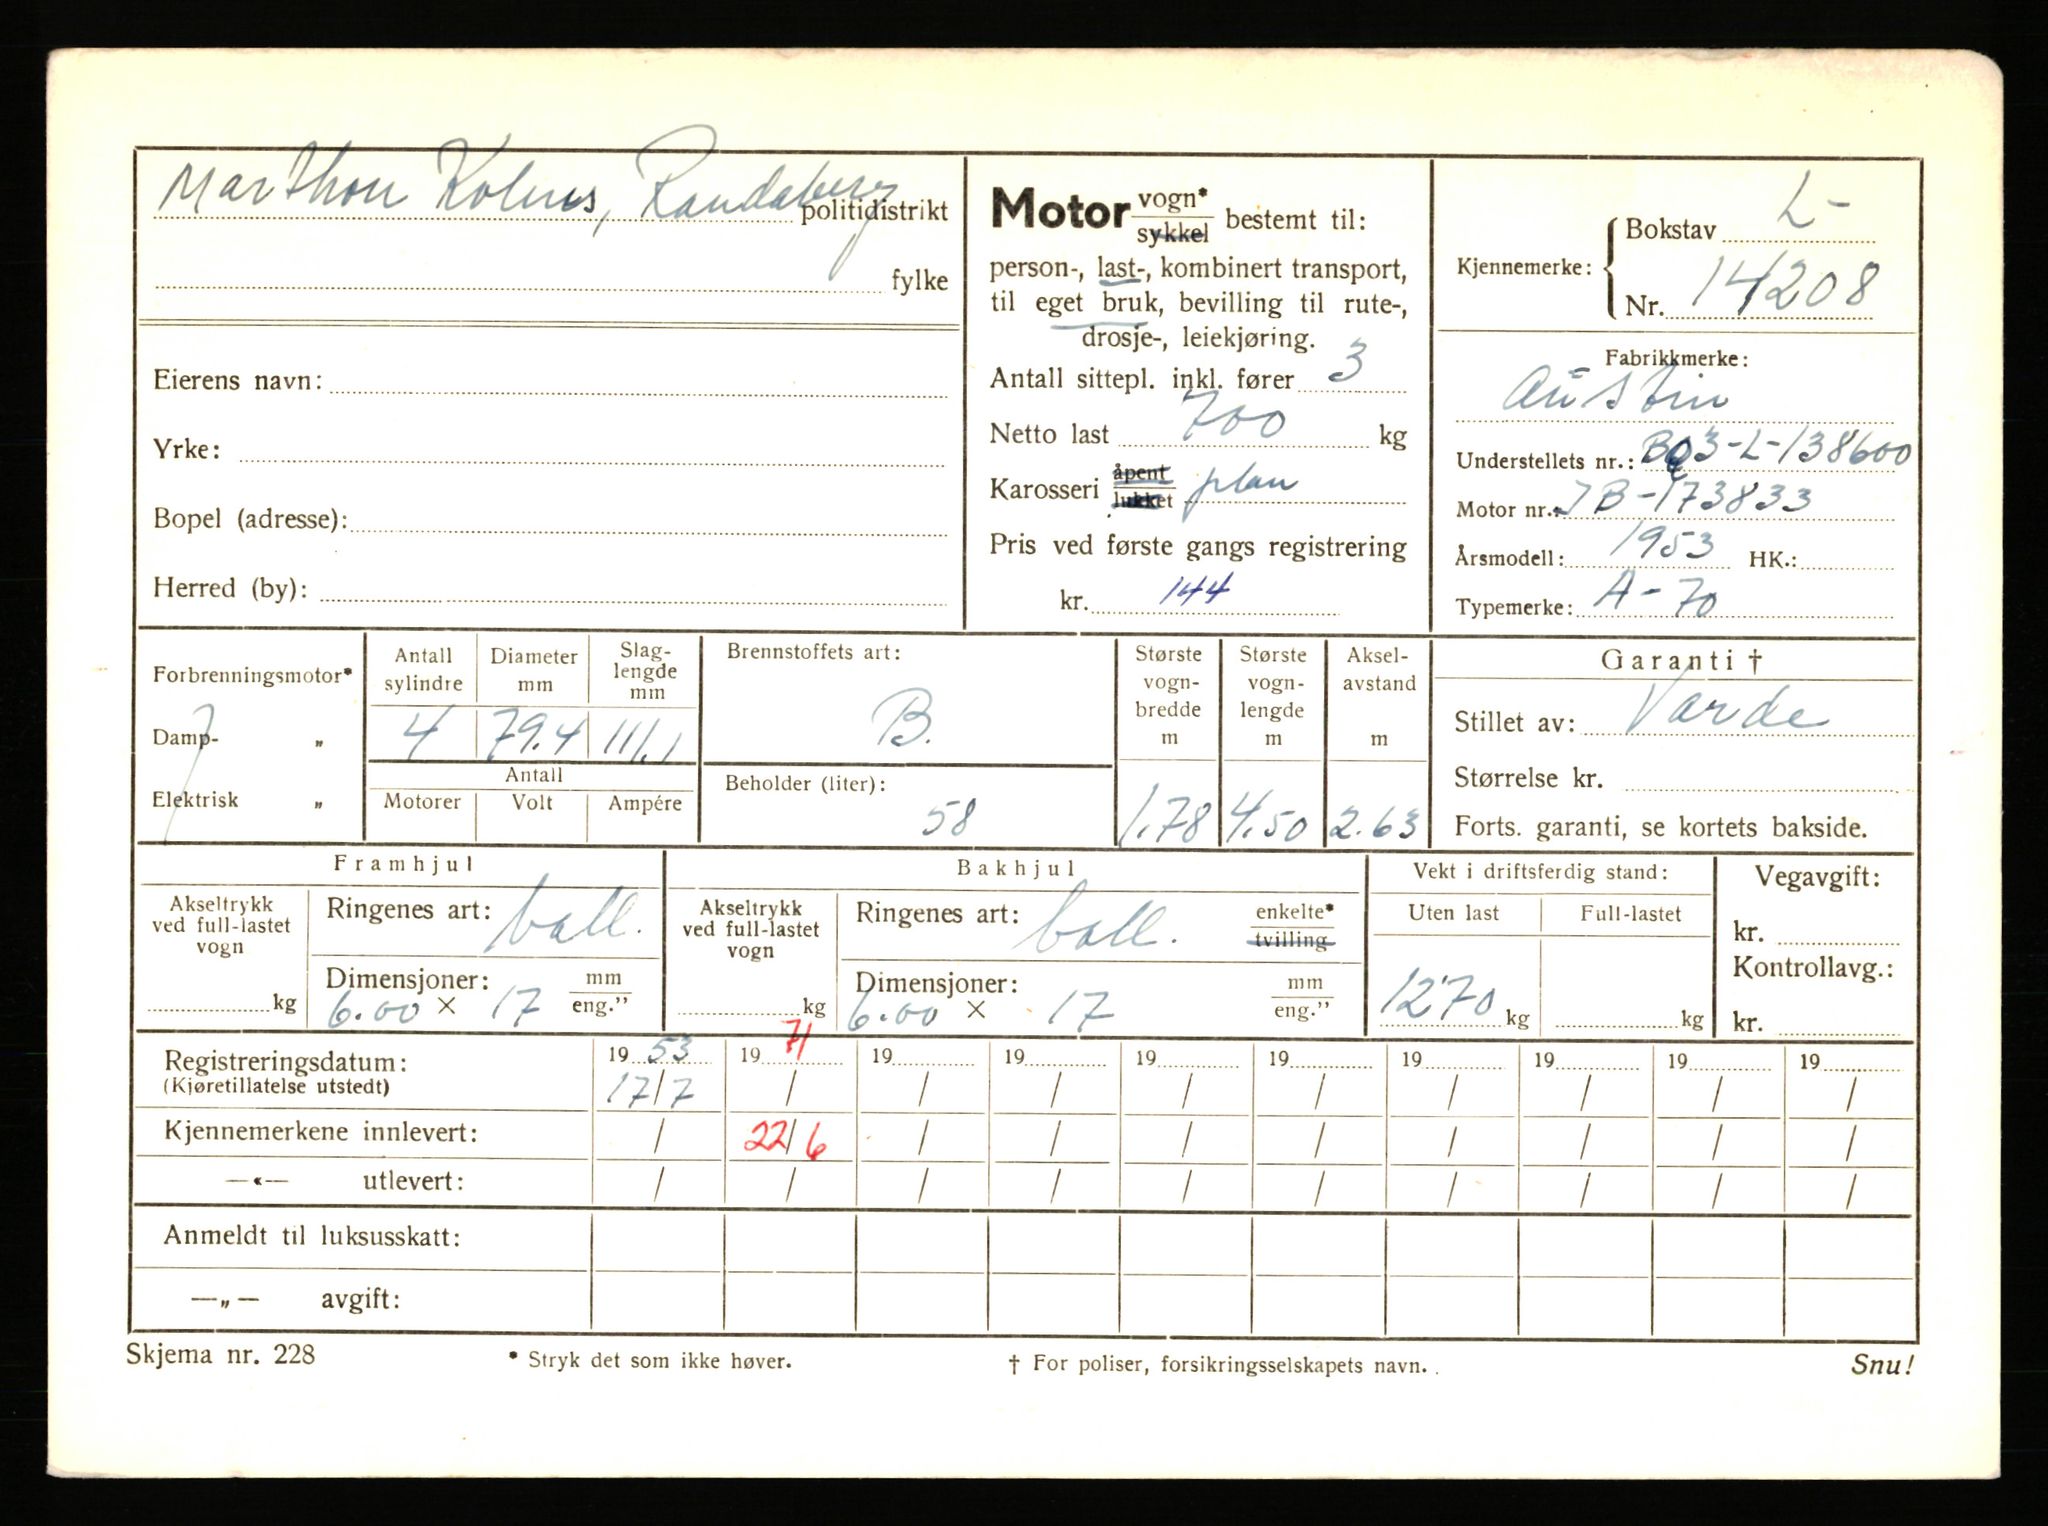 Marthon Kolnes, Randaberg
politidistrikt
fylke
Eierens navn:
Yrke:
Bopel (adresse):
Herred (by):
Motor vogn* sykkel bestemt til:
person-, last-, kombinert transport,
til eget bruk, bevilling til rute-,
drosje-, leiekjøring.
Antall sittepl. inkl. fører 3
Netto last 700 kg
Karosseri åpent lukket plan
Pris ved første gangs registrering
kr. 144
Kjennemerke: Bokstav L-
Nr. 14208
Fabrikkmerke:
Austin
Understellets nr.: B03-L-138600
Motor nr.: JB-173833
Årsmodell: 1953 HK.:
Typemerke: A-70
Forbrenningsmotor*
Damp- „
Elektrisk „
Antall sylindre
4
Diameter mm
79.4
Slag-
lengde
mm
111.1
Antall
Motorer Volt Ampére
Brennstoffets art:
B.
Beholder (liter):
58
Største
vogn-
bredde
m
1.78
Største
vogn-
lengde
m
4.50
Aksel-
avstand
m
2.63
Garanti †
Stillet av: Varde
Størrelse kr.
Forts. garanti, se kortets bakside.
Framhjul
Akseltrykk
ved full-lastet
vogn
kg
Ringenes art: ball.
Dimensjoner: mm
6.00 × 17 eng.”
Bakhjul
Akseltrykk
ved full-lastet
vogn
kg
Ringenes art: ball. enkelte*
tvilling
Dimensjoner: mm
6.00 × 17 eng.”
Vekt i driftsferdig stand:
Uten last Full-lastet
1270 kg kg
Vegavgift:
kr.
Kontrollavg.:
kr.
Registreringsdatum: 19 53 19 71 19 19 19 19 19 19 19 19
(Kjøretillatelse utstedt) 17/7 / / / / / / / / /
Kjennemerkene innlevert: / 22/6 / / / / / / / /
—«— utlevert: / / / / / / / / / /
Anmeldt til luksusskatt:
—„— avgift:
Skjema nr. 228 * Stryk det som ikke høver. † For poliser, forsikringsselskapets navn. Snu!